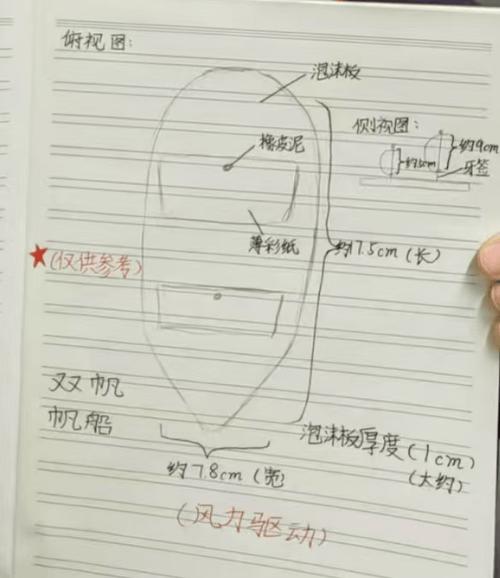 俯视图:
泡沫板
侧视图:
橡皮泥
约9cm
牙签
薄彩纸
约17.5cm(长)
★(仅供参考)
双帆
帆船
泡沫板厚度(1cm)
(大约)
约7.8cm(宽)
(风力驱动)